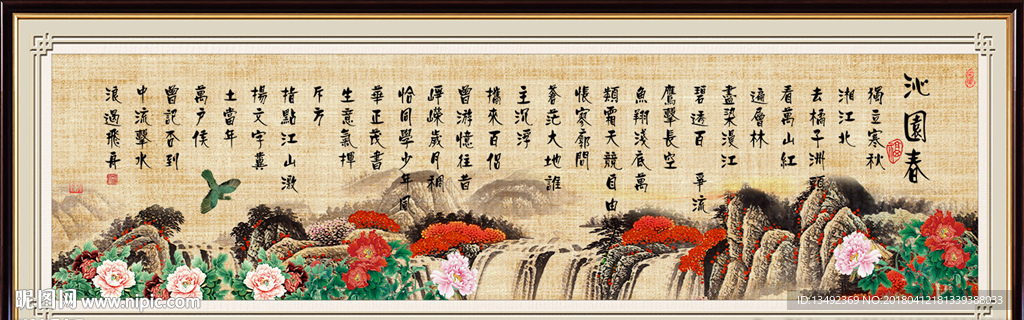 沁園春
獨立寒秋
湘江北
去橘子洲頭
看萬山紅
遍層林
盡染漫江
碧透百 爭流
鷹擊長空
魚翔淺底萬
類霜天競自由
悵寥廓問
蒼茫大地誰
主沉浮
攜來百侶
曾游憶往昔
崢嶸歲月稠
恰同學少年同
華正茂書
生意氣揮
斥方
指點江山激
揚文字糞
土當年
萬戶侯
曾記否到
中流擊水
浪遏飛舟
昵图网 www.nipic.com
ID:13492369 NO:20180412181339388033